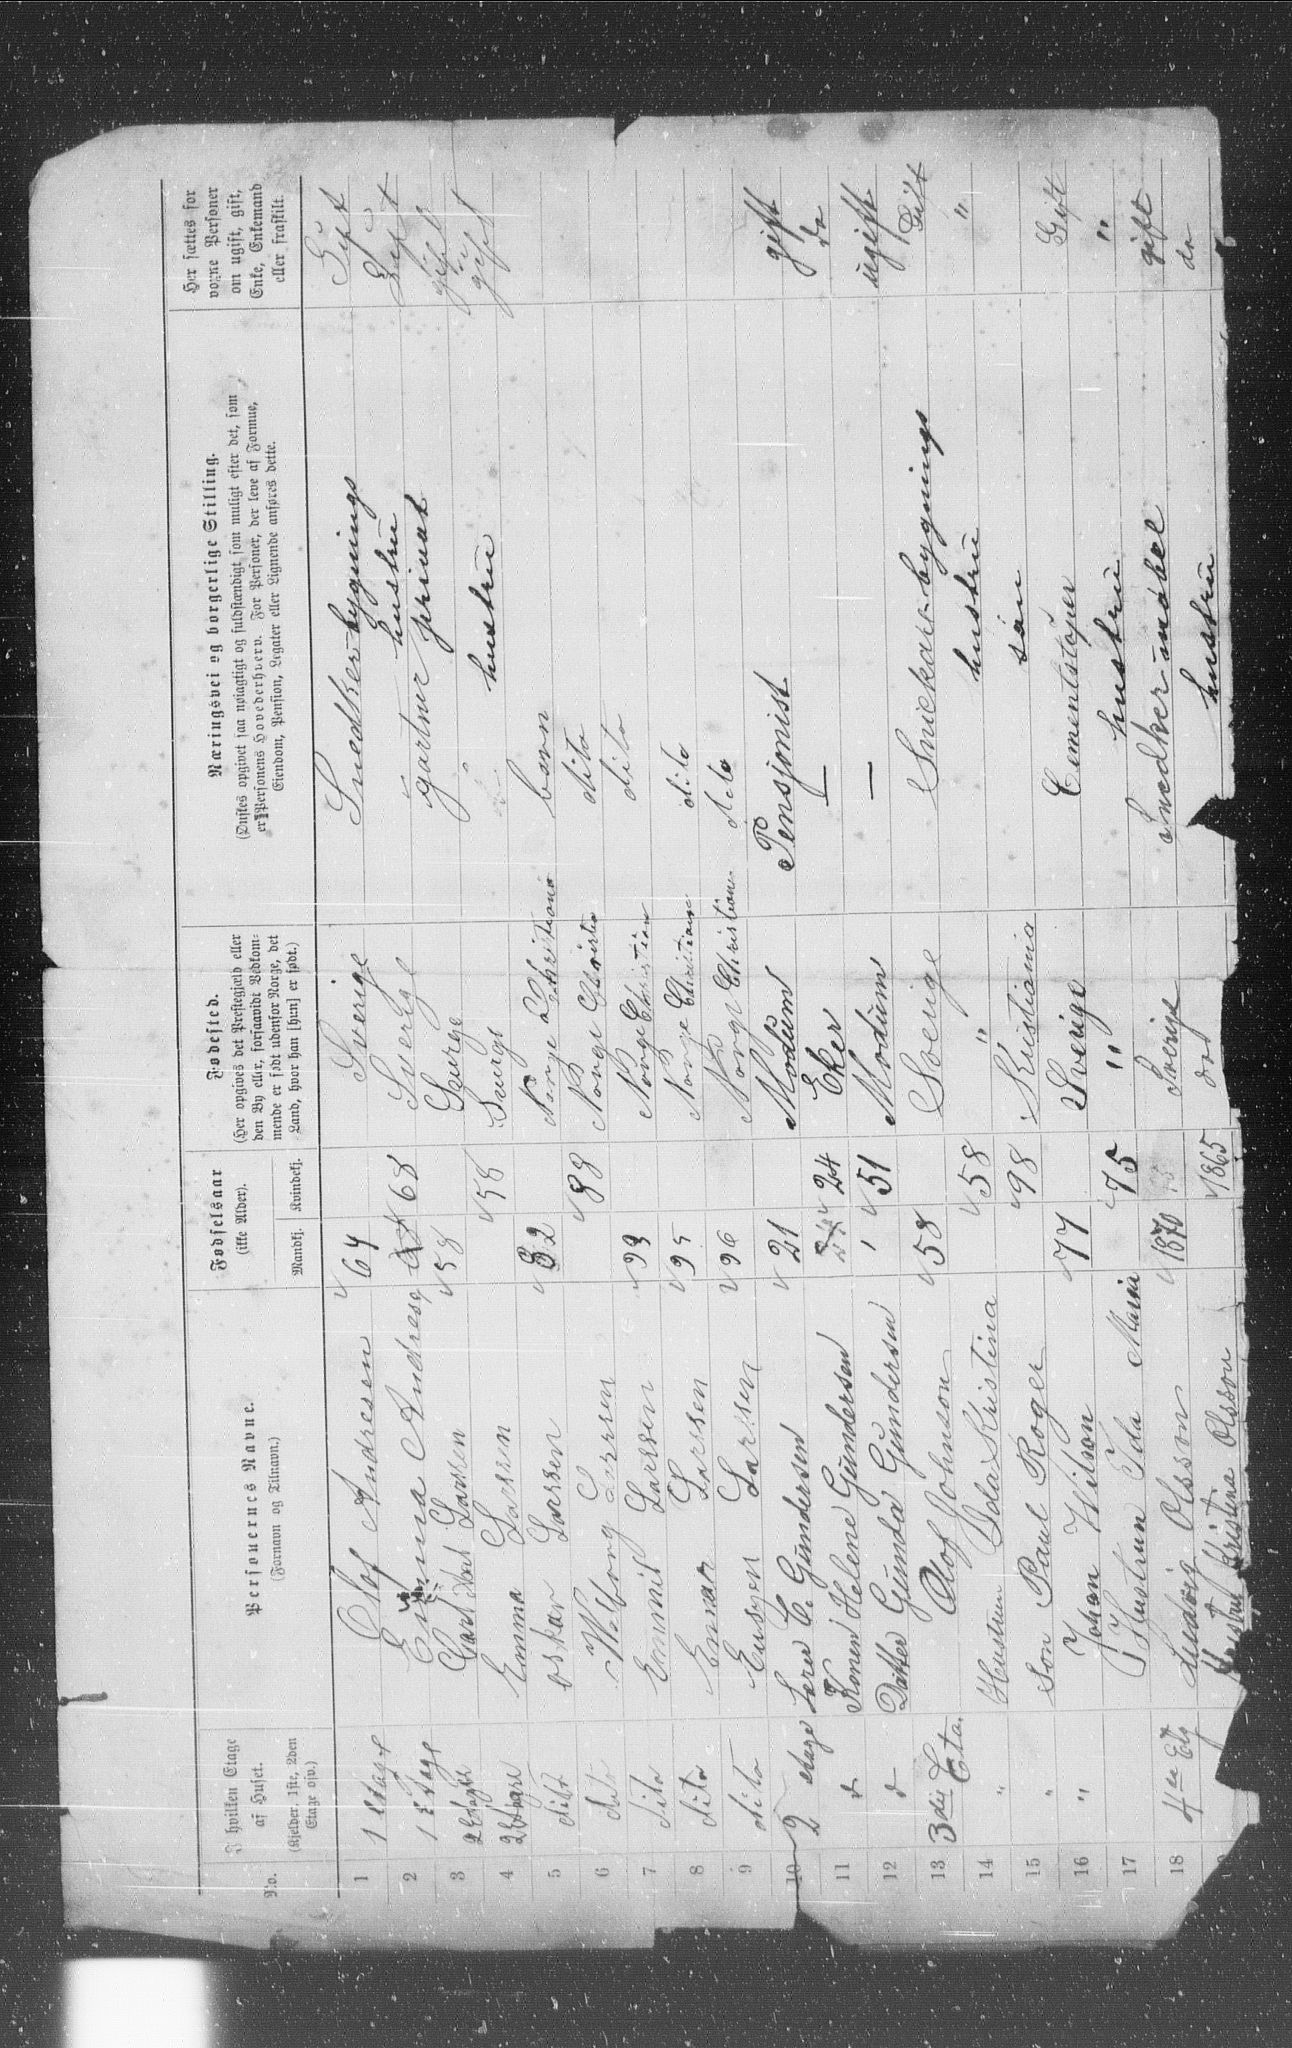 No.
I hvilken Etage
af Huset.
(Kjelder, 1ste, 2den
Etage osv.)
Personernes Navne.
(Fornavn og Tilnavn.)
Fødselsaar
(ikke Alder).
Mandkj. Kvindekj.
Fødested.
(Her opgives det Prestegjæld eller
den By eller, forsaavidt Vedkom-
mende er født udenfor Norge, det
Land, hvor han [hun] er født.)
Næringsvei og borgerlige Stilling.
(Ønskes opgivet saa nøiagtigt og fuldstændigt som muligt efter det, som
er Personens Hovederhverv. For Personer, der leve af Formue,
Eiendom, Pension, Legater eller Lignende anføres dette.
Her sættes for
vorne Personer
om ugift, gift,
Enke, Enkemand
eller fraskilt.
1 1 Etage Olof Andresen 64 Sverige Snedker bygnings Gift
2 1 Etage Andresen 68 Sverige hustru Gift
3 2 Etage Carl Larsen 58 Sverge gartner privat gift
4 2 Etage Emma Larsen 58 Sverge hustru gift
5 dito Oskar Larsen Norge Christiania barn
6 dito Larsen 88 Norge dito
7 dito Emmil Larsen 93 Norge Christian dito
8 dito Einar Larsen 95 Norge Christian dito
9 dito Eugen Larsen 96 Norge Christian dito
10 2 etage Lerer C. Gundersen 21 Modum Pensjonist gift
11 d Konen Helene Gundersen 24 Eker — do
12 d Datter Gunda Gundersen 51 Modum — ugift
13 3die Eta. Olof Johnson 58 Sverige Sniekare bygnings Gift
14 " Hustrun Ida Kristina 58 " hustru "
15 " Son Paul Roger 98 Kristiania sön
16 " Johan Wilson 77 Sverige Cementstöper Gift
17 Hustrun Ida Maria 75 " hustru "
18 4de Etg Ludvig Olsson 1870 Sverige Snedker möbel gift
Kristina Olsson 1865 hustru do